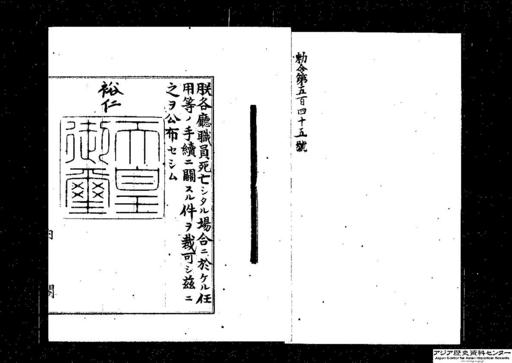 勅令第五百四十五號
朕各廳職員死亡シタル場合ニ於ケル任
用等ノ手續ニ關スル件ヲ裁可シ茲ニ
之ヲ公布セシム
裕仁
天皇
御璽
内閣
アジア歴史資料センター
Japan Center for Asian Historical Records